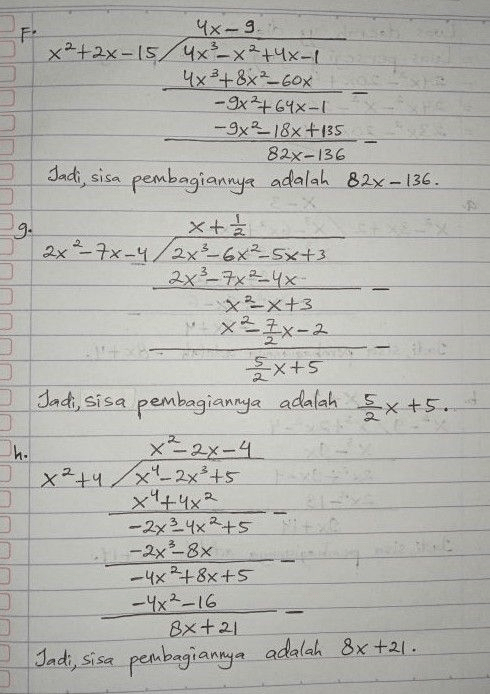 F. 4x-9
x²+2x-15 / 4x³-x²+4x-1
4x³+8x²-60x
-9x²+64x-1
-9x²-18x+135
82x-136
Jadi, sisa pembagiannya adalah 82x-136.
g. x+1/2
2x²-7x-4 / 2x³-6x²-5x+3
2x³-7x²-4x
x²-x+3
x²-7/2x-2
5/2x+5
Jadi, sisa pembagiannya adalah 5/2x+5.
h. x²-2x-4
x²+4 / x⁴-2x³+5
x⁴+4x²
-2x³-4x²+5
-2x³-8x
-4x²+8x+5
-4x²-16
8x+21
Jadi, sisa pembagiannya adalah 8x+21.